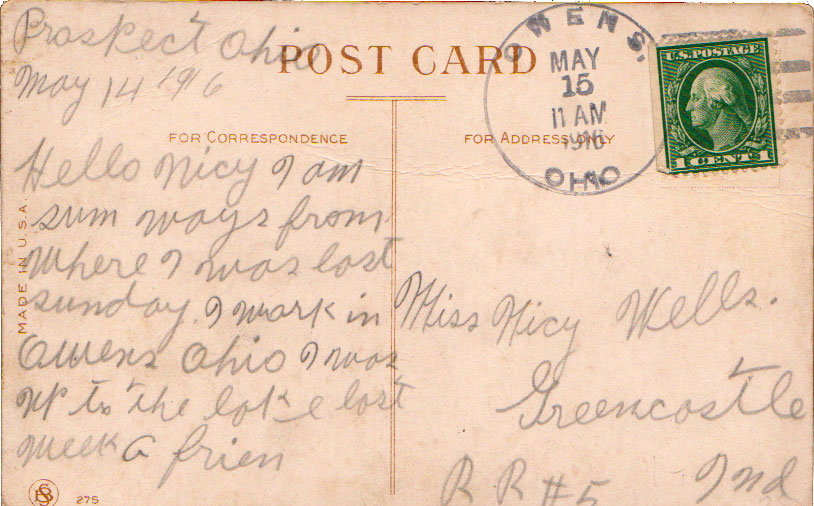 Prospect Ohio
May 14 1916
POST CARD
OWENS,
MAY
15
11 AM
1916
OHIO
U.S. POSTAGE
1 CENTS 1
FOR CORRESPONDENCE
FOR ADDRESS ONLY
Hello Nicy I am
sum ways from
where I was last
sunday. I work in
Owens Ohio I was
up to the lake last
week a frien
Miss Nicy Wells.
Greencastle
RR #5 Ind
MADE IN U.S.A.
275